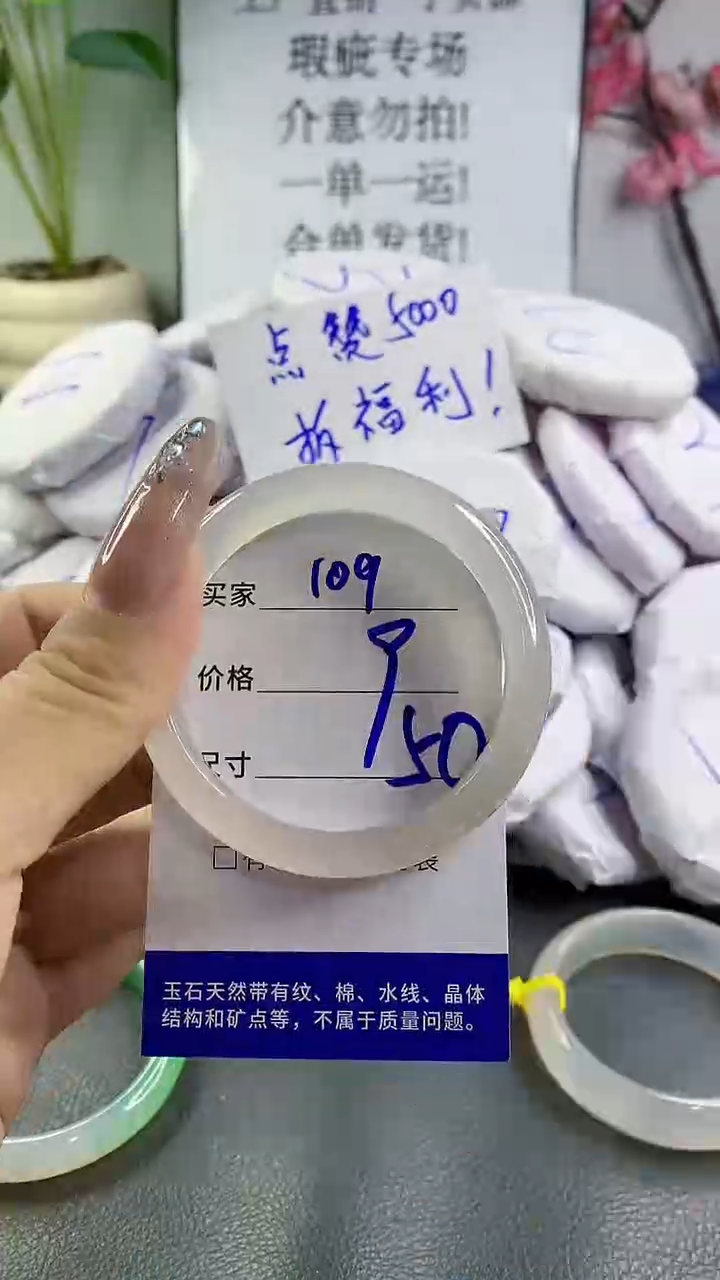 瑕疵专场
介意勿拍!
一单一运!
合单发货!
点赞5000
拆福利!
买家 109
价格
尺寸 50
玉石天然带有纹、棉、水线、晶体
结构和矿点等，不属于质量问题。